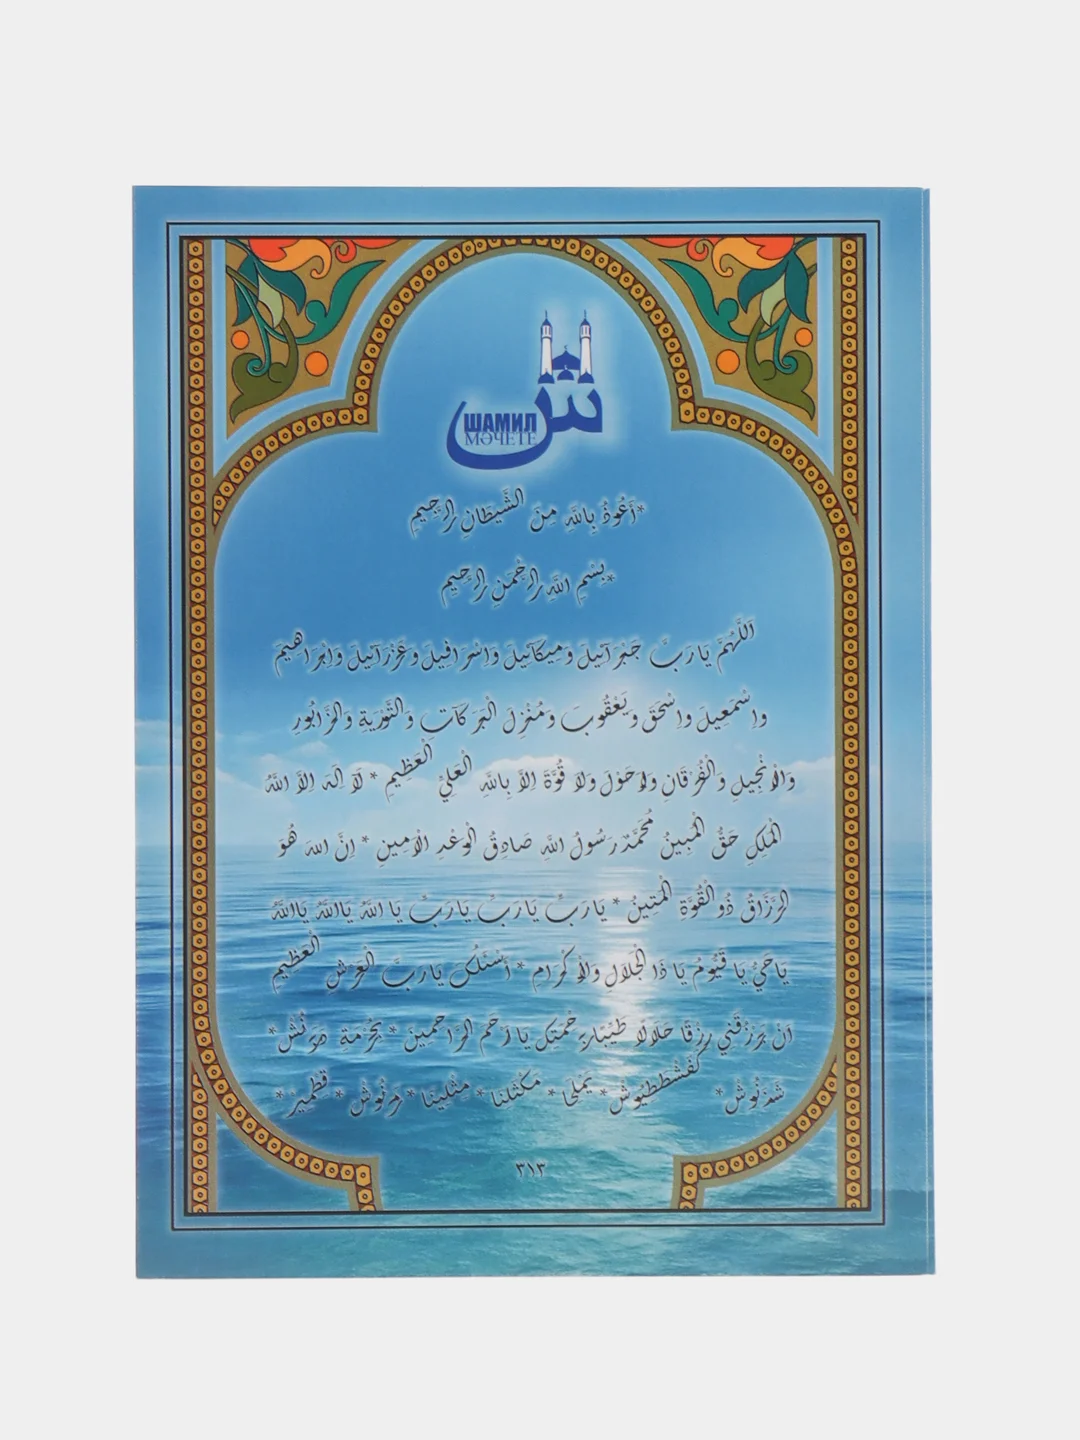 ШАМИЛ
МӘЧЕТЕ
*أَعُوذُ بِاللَّهِ مِنَ الشَّيْطَانِ الرَّجِيمِ
*بِسْمِ اللَّهِ الرَّحْمَنِ الرَّحِيمِ
اَللَّهُمَّ يَا رَبَّ جَبْرَآئِيلَ وَمِيكَآئِيلَ وَاِسْرَافِيلَ وَعَزْرَآئِيلَ وَاِبْرَاهِيمَ
وَاِسْمَعِيلَ وَاِسْحَقَ وَيَعْقُوبَ وَمُنْزِلَ الْبَرَكَاتِ وَالتَّوْرَيةِ وَالزَّابُورِ
وَالْاِنْجِيلِ وَالْفُرْقَانِ وَلَاحَوْلَ وَلَا قُوَّةَ اِلاَّ بِاللَّهِ الْعَلِيِّ الْعَظِيمِ * لَآ اِلَهَ اِلاَّ اللَّهُ
الْمَلِكِ حَقُّ الْمُبِينُ مُحَمَّدٌ رَسُولُ اللَّهِ صَادِقُ الْوَعْدِ الْاَمِينِ * اِنَّ اللهَ هُوَ
الرَّزَّاقُ ذُو الْقُوَّةِ الْمَتِينُ * يَارَبِّ يَارَبِّ يَارَبِّ يَا اللَّهُ يَااللَّهُ يَااللَّهُ
يَاحَيُّ يَا قَيُّومُ يَا ذَا الْجَلَالِ وَالْاِكْرَامِ * أَسْئَلُكَ يَا رَبَّ الْعَرْشِ الْعَظِيمِ
اَنْ يَرْزُقَنِي رِزْقًا حَلَالًا طَيِّبًا بِرَحْمَتِكَ يَا اَرْحَمَ الرَّاحِمِينَ * بِحُرْمَةِ دَبَرْنُشْ*
شَذَنُوشْ* كَفَشْطَطَيُوشْ* يَمْلِخَا* مَكْثَلِنَا* مِثْلِينَا* مَرْنُوشْ* قِطْمِيرْ*
٣١٣